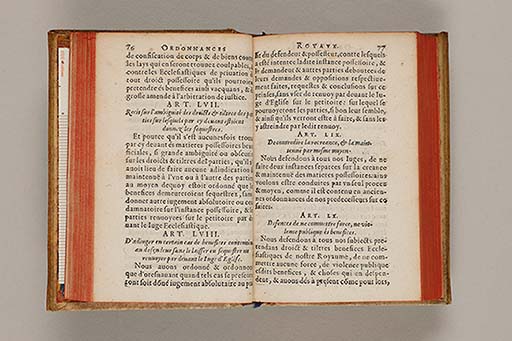 76 ORDONNANCES
de confiscation de corps & de biens contre
les lays qui en seront trouuez coulpables, &
contre les Ecclesiastiques de priuation de
tout droict possessoire qu'ils pourroient
pretendre és benefices ainsi vacquans, & de
grosse amende à l'arbitration de iustice.
ART. LVII.
sur l'ambiguité des droicts & tiltres des par
ties sur lesquels par cy deuant estoient
donnez les sequestres.
Et pource qu'il s'est aucunesfois trouué
par cy deuant és matieres possessoires bene
ficiales, si grande ambiguité ou obscurité
sur les droicts & tiltres des parties, qu'il n'y
auoit lieu de faire aucune adiudication de
maintenuë à l'vne ou à l'autre des parties
au moyen dequoy estoit ordonné que les
benefices demeureroient sequestrez, sans
donner autre iugement absolutoire ou con
damnatoire sur l'instance possessoire, & les
parties renuoyees sur le petitoire par de
uant le Iuge Ecclesiastique.
ART. LVIII.
D'adiuger en certain cas de benefices contentieux
au defendeur sans le laisser en sequestre ou
renuoyer par deuant le Iuge d'Eglise.
Nous auons ordonné & ordonnons
que d'oresnauant quand tels cas se presente
ront soit donné iugement absolutoire au pro
ROYAVX. 77
fit du defendeur & possesseur, contre lesquels
a esté intentee ladite instance possessoire, &
les demandeurs & autres parties deboutees de
leurs demandes & oppositions respectiue-
ment faites, requestes & conclusions sur ce
prinses, sans vser de renuoy par deuant le Iu-
ge d'Eglise sur le petitoire: sur lequel se
pouruoyeront les parties, si bon leur semble,
& ainsi qu'ils verront estre à faire, & sans les
y astreindre par ledit renuoy.
ART. LIX.
De conduire la recreance, & la main-
tenuë par mesme moyen.
Nous defendons à tous nos Iuges, de ne
faire deux instances separees sur la creance
& maintenuë des matieres possessoires: ains
voulons estre conduites par vn seul procez
& moyen, comme il est contenu és ancien-
nes ordonnances de nos predecesseurs sur ce
faictes.
ART. LX.
Defences de ne commettre force, ne vio-
lence publique és benefices.
Nous defendons à tous nos subiects pre-
tendans droict & tiltres benefices Eccle-
siastiques de nostre Royaume, de ne com-
mettre aucune force, de violence publique
esdits benefices, & choses qui en depen-
dent, & auons dés à present côme pour lors,